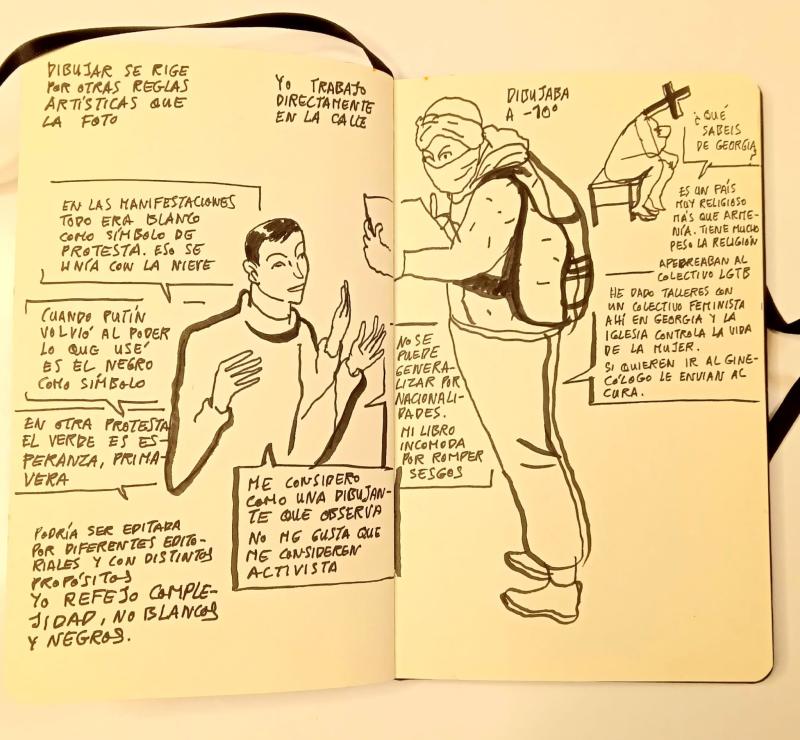 DIBUJAR SE RIGE
POR OTRAS REGLAS
ARTÍSTICAS QUE
LA FOTO
YO TRABAJO
DIRECTAMENTE
EN LA CALLE
EN LAS MANIFESTACIONES
TODO ERA BLANCO
COMO SÍMBOLO DE
PROTESTA. ESO SE
UNÍA CON LA NIEVE
CUANDO PUTIN
VOLVIÓ AL PODER
LO QUE USÉ
ES EL NEGRO
COMO SÍMBOLO
EN OTRA PROTESTA
EL VERDE ES ES-
PERANZA, PRIMA-
VERA
ME CONSIDERO
COMO UNA DIBUJAN-
TE QUE OBSERVA
NO ME GUSTA QUE
ME CONSIDEREN
ACTIVISTA
PODRÍA SER EDITADA
POR DIFERENTES EDITO-
RIALES Y CON DISTINTOS
PROPÓSITOS
YO REFEJO COMPLE-
JIDAD, NO BLANCOS
Y NEGROS.
DIBUJABA
A -10º
¿QUÉ
SABEIS
DE GEORGIA?
ES UN PAÍS
MUY RELIGIOSO
MÁS QUE ARME-
NÍA. TIENE MUCHO
PESO LA RELIGIÓN
APEDREABAN AL
COLECTIVO LGTB
HE DADO TALLERES CON
UN COLECTIVO FEMINISTA
AHÍ EN GEORGIA Y LA
IGLESIA CONTROLA LA VIDA
DE LA MUJER.
SI QUIEREN IR AL GINE-
CÓLOGO LE ENVIAN AL
CURA.
NO SE
PUEDE
GENERA-
LIZAR POR
NACIONALI-
DADES.
MI LIBRO
INCOMODA
POR ROMPER
SESGOS